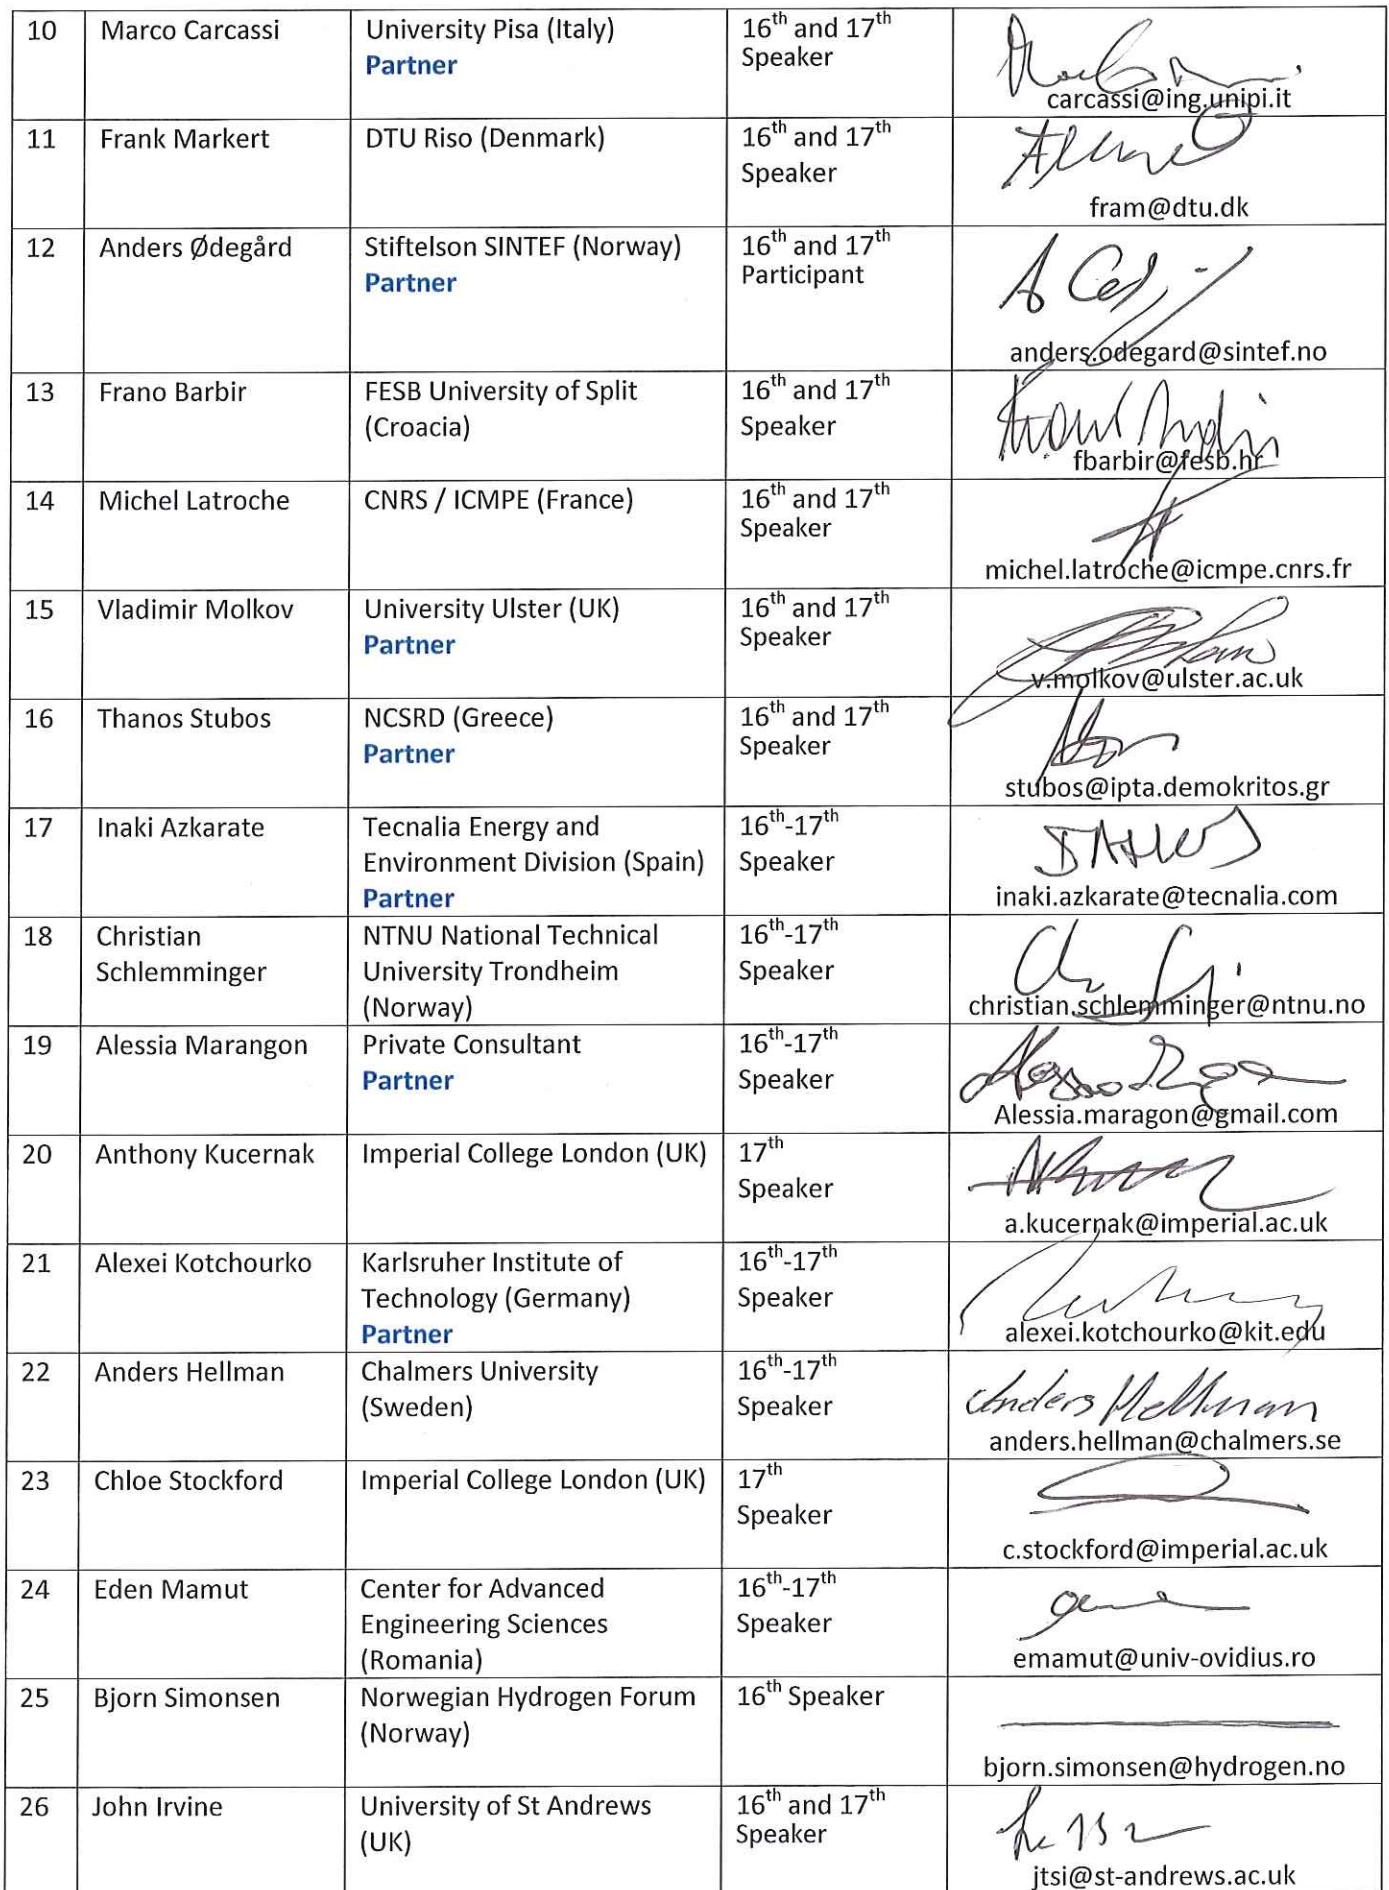 10 Marco Carcassi University Pisa (Italy) 16th and 17th
Partner Speaker
carcassi@ing.unipi.it
11 Frank Markert DTU Riso (Denmark) 16th and 17th
Speaker
fram@dtu.dk
12 Anders Ødegård Stiftelson SINTEF (Norway) 16th and 17th
Partner Participant
anders.odegard@sintef.no
13 Frano Barbir FESB University of Split 16th and 17th
(Croacia) Speaker
fbarbir@fesb.hr
14 Michel Latroche CNRS / ICMPE (France) 16th and 17th
Speaker
michel.latroche@icmpe.cnrs.fr
15 Vladimir Molkov University Ulster (UK) 16th and 17th
Partner Speaker
v.molkov@ulster.ac.uk
16 Thanos Stubos NCSRD (Greece) 16th and 17th
Partner Speaker
stubos@ipta.demokritos.gr
17 Inaki Azkarate Tecnalia Energy and 16th-17th
Environment Division (Spain) Speaker
Partner inaki.azkarate@tecnalia.com
18 Christian NTNU National Technical 16th-17th
Schlemminger University Trondheim Speaker
(Norway) christian.schlemminger@ntnu.no
19 Alessia Marangon Private Consultant 16th-17th
Partner Speaker
Alessia.maragon@gmail.com
20 Anthony Kucernak Imperial College London (UK) 17th
Speaker
a.kucernak@imperial.ac.uk
21 Alexei Kotchourko Karlsruher Institute of 16th-17th
Technology (Germany) Speaker
Partner alexei.kotchourko@kit.edu
22 Anders Hellman Chalmers University 16th-17th
(Sweden) Speaker Anders Hellman
anders.hellman@chalmers.se
23 Chloe Stockford Imperial College London (UK) 17th
Speaker
c.stockford@imperial.ac.uk
24 Eden Mamut Center for Advanced 16th-17th
Engineering Sciences Speaker
(Romania) emamut@univ-ovidius.ro
25 Bjorn Simonsen Norwegian Hydrogen Forum 16th Speaker
(Norway)
bjorn.simonsen@hydrogen.no
26 John Irvine University of St Andrews 16th and 17th
(UK) Speaker
jtsi@st-andrews.ac.uk